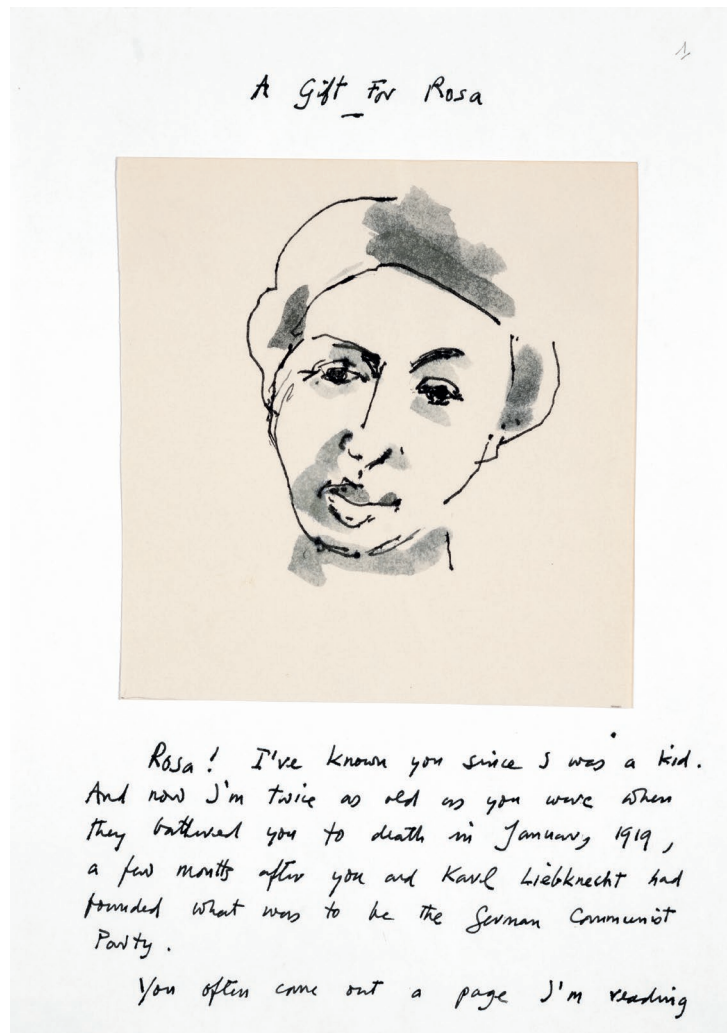 1
A Gift For Rosa
Rosa! I've known you since I was a kid.
And now I'm twice as old as you were when
they battered you to death in January 1919,
a few months after you and Karl Liebknecht had
founded what was to be the German Communist
Party.
You often come out a page I'm reading